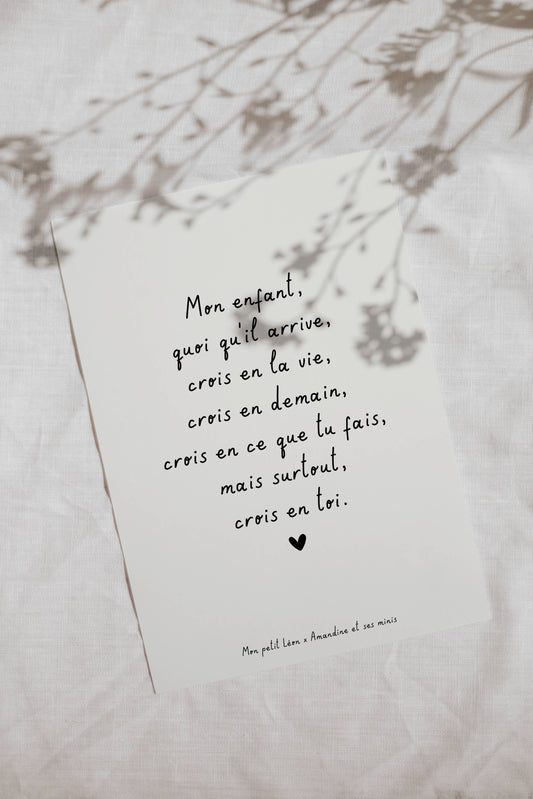 Mon enfant,
quoi qu'il arrive,
crois en la vie,
crois en demain,
crois en ce que tu fais,
mais surtout,
crois en toi.
Mon petit Léon x Amandine et ses minis